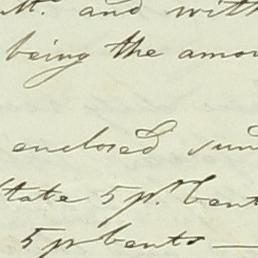 and with
being the amou
enclosed sum
State 5 pr. Cent
5 pr Cents —